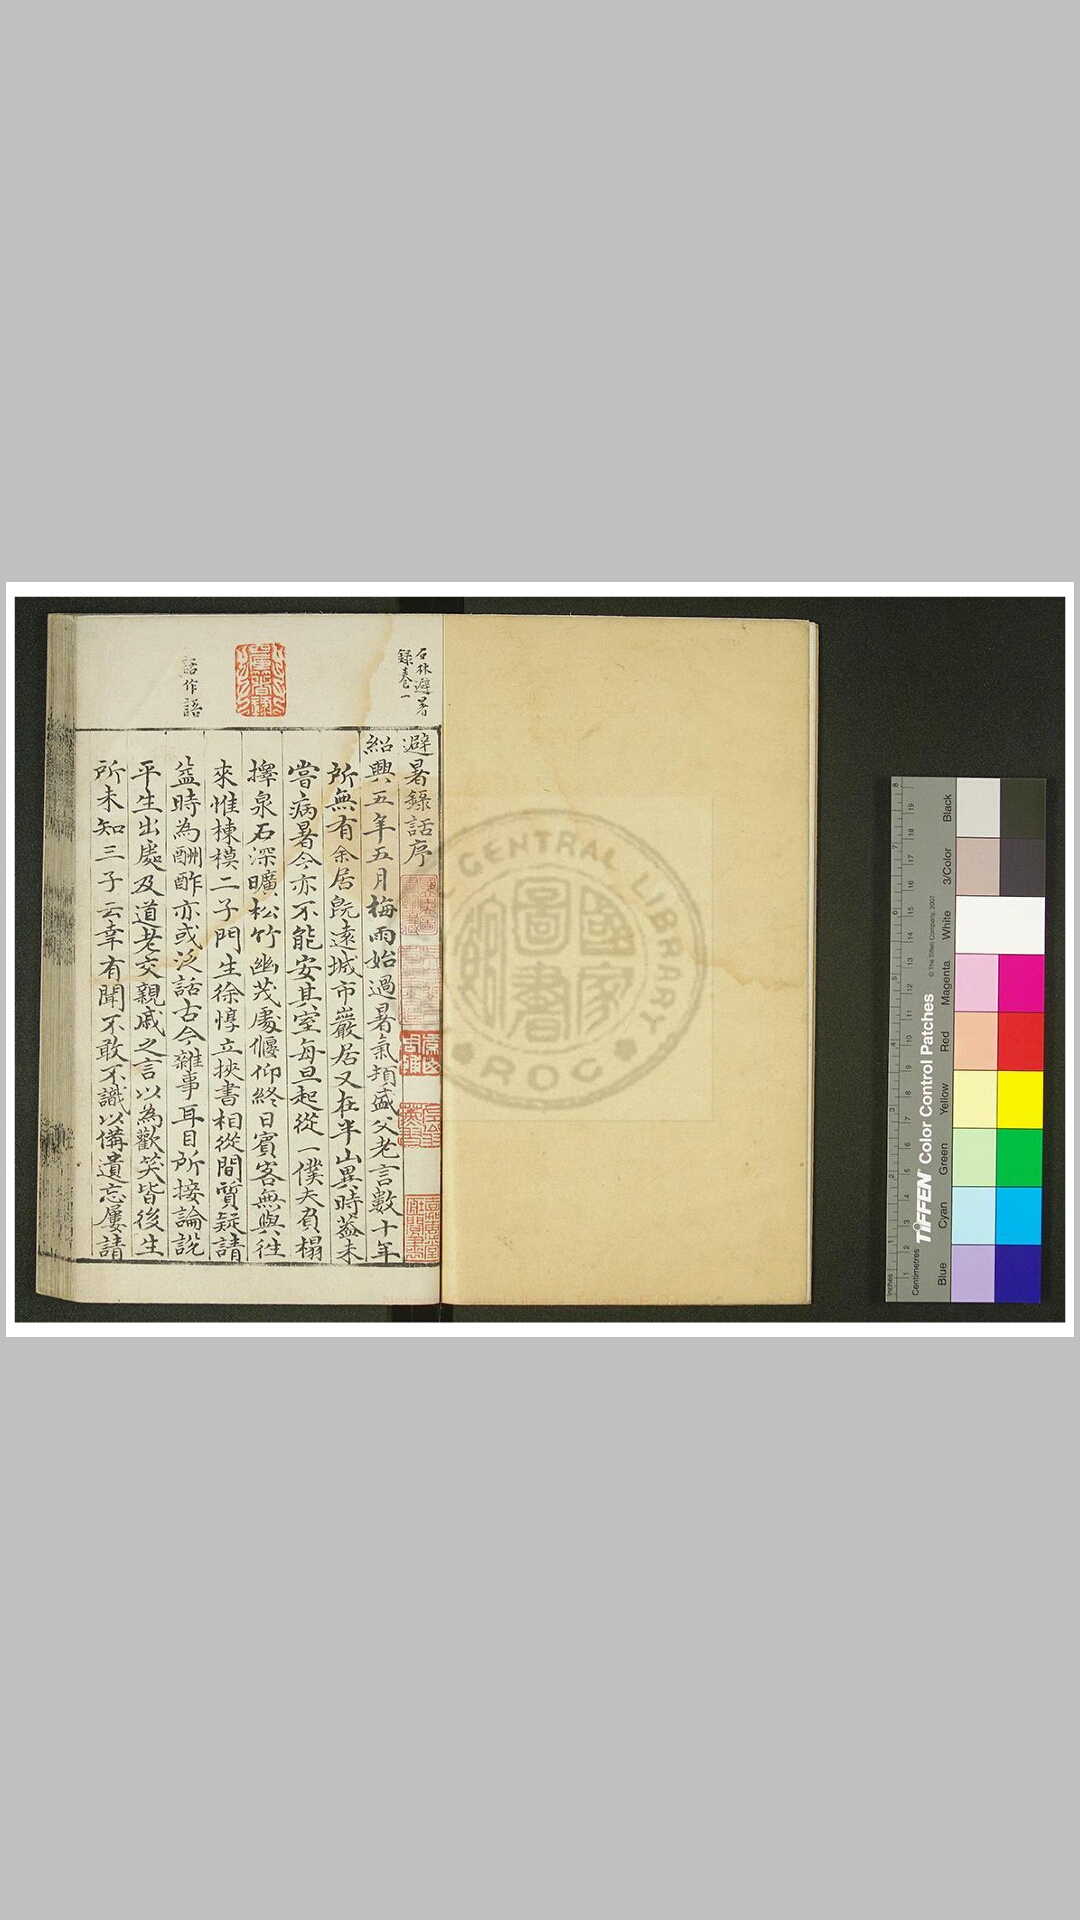 石林避暑
録卷一
避暑錄話序
紹興五年五月梅雨始過暑氣頓盛父老言數十年
所無有余居旣遠城市巖居又在半山異時蓋未
嘗病暑今亦不能安其室每旦起從一僕夫負榻
擇泉石深曠松竹幽茂處偃仰終日賓客無與往
來惟棟模二子門生徐惇立挾書相從間質疑請
益時為酬酢亦或泛話古今雜事耳目所接論說
平生出處及道老交親戚之言以為歡笑皆後生
所未知三子云幸有聞不敢不識以備遺忘屢請
話作語
CENTRAL LIBRARY
ROC
Black
3/Color
White
Magenta
Red
Yellow
Green
Cyan
Blue
© The Tiffen Company, 2007
TIFFEN Color Control Patches
Centimetres
Inches